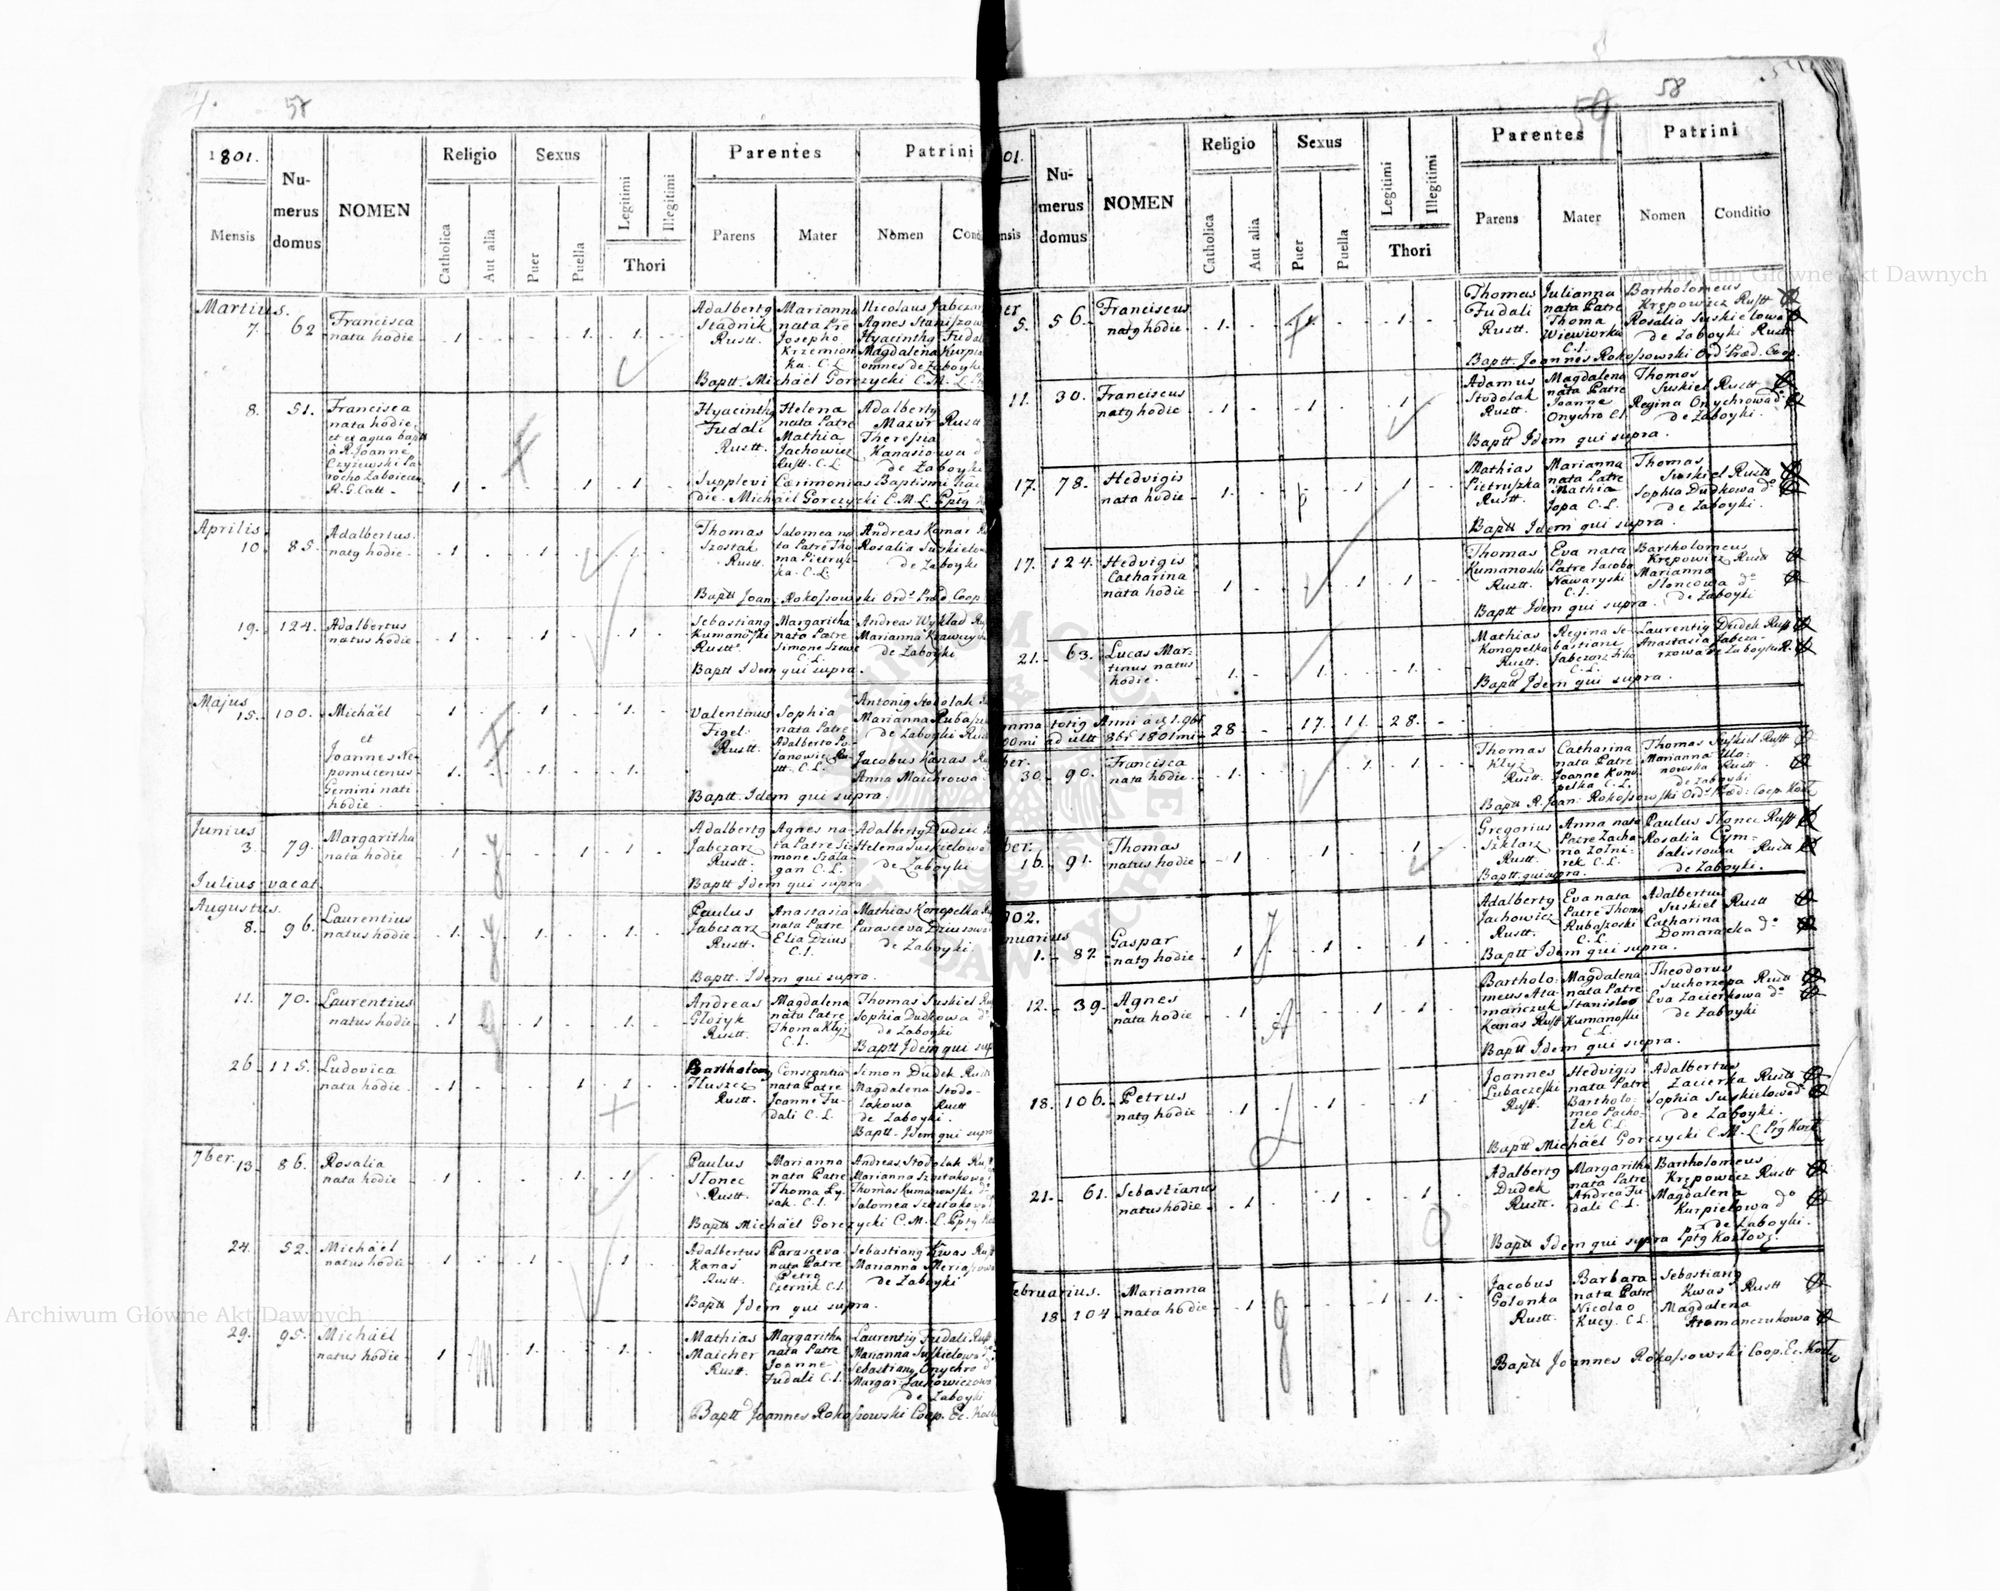 57
1801.
Mensis
Numerus domus
NOMEN
Religio
Catholica
Aut alia
Sexus
Puer
Puella
Legitimi
Illegitimi
Thori
Parentes
Parens
Mater
Patrini
Nomen
Martius.
7. 62 Francisca
nata hodie
1. 1. 1.
Adalbertg
Stadnik
Rustt.
Marianna
nata Pre
Josepho
Krzemion
ka. C.L.
Nicolaus Jabczar
Hyacinthg Fudali
Magdalena Kurpie
omnes de Zaboyki
Baptt. Michäel Gorczycki C.M.L.
8. 51. Francisca
nata hodie
et ex aqua bapt
à R. Joanne
Czyzewski Pa
rocho Zaborecen
R. G. Catt.
1 1 1
Hyacinthg
Fudali
Rustt.
Helena
nata Patre
Mathia
Jachowicz
Rustt. C.L.
Adalbertg
Mazur Rustt
Theressia
Kanasiowa
de Zaboyki
Supplevi Cærimonias Baptismi hac
die. Michäel Gorczycki C.M.L.
Aprilis
10 85 Adalbertus
natg hodie
1 1 1
Thomas
Szostak
Rustt.
Salomea na
ta Patre Tho
ma Pietrusz
ka. C.L.
Andreas Komar
Rosalia Suskielow
de Zaboyki
Baptt Joan. Rokossowski Ord. Præd. Coop
19. 124. Adalbertus
natus hodie
1 1 1
Sebastiang
Kumanoski
Rustt.
Margaritha
nata Patre
Simone Szewc
C.L.
Andreas Wyklad
Marianna Krawczy
de Zaboyki
Baptt Idem qui supra.
Majus
15. 100. Michäel
et
Joannes Ne
pomucenus
Gemini nati
hodie.
1. 1. 1.
1. 1. 1.
Valentinus
Figel.
Rustt.
Sophia
nata Patre
Adalberto
C.L.
Antonig Stodolak
Marianna Rubasz
de Zaboyki
Jacobus Kanas
Anna Maichrowa
Baptt. Idem qui supra.
Junius
3. 79. Margaritha
nata hodie
1 1 1
Adalbertg
Jabczarz
Rustt.
Agnes na
ta Patre Si
mone Szala
gan C.L.
Adalbertg Dudzic
Helena Suskielowa
de Zaboyki
Baptt Idem qui supra
Julius vacat
Augustus.
8. 96. Laurentius
natus hodie
1. 1. 1.
Paulus
Jabczarz
Rustt.
Anastasia
nata Patre
Elia Dzius
C.L.
Mathias Konopelka
Parasceva Dziusowa
de Zaboyki
Baptt. Idem qui supra.
11. 70. Laurentius
natus hodie
1 1 1.
Andreas
Glozyk
Rustt.
Magdalena
nata Patre
Thoma Klyz
C.L.
Thomas Suskiel
Sophia Dudkowa
de Zaboyki
Baptt Idem qui sup
26 115. Ludovica
nata hodie
1 1 1
Bartholomg
Tluszcz
Rustt.
Constantia
nata Patre
Joanne Fu
dali C.L.
Simon Dudek Rustt
Magdalena Stodo
lakowa Rustt
de Zaboyki.
Baptt. Idem qui supra
7ber. 13. 86. Rosalia
nata hodie
1 1 1
Paulus
Slonec
Rustt.
Marianna
nata Patre
Thoma Ly
sak. C.L.
Andreas Stodolak
Marianna Szostakowa
Thomas Kumanowski
Salomea Szostakowa
Baptt Michäel Gorczycki C.M.L.
24. 52. Michäel
natus hodie
1 1 1
Adalbertus
Kanas
Rustt.
Parasceva
nata Patre
Petro
Czernik C.L.
Sebastiang Kwas
Marianna
de Zaboyki
Baptt Idem qui supra.
29. 95. Michäel
natus hodie
1 1 1
Mathias
Maicher
Rustt.
Margaritha
nata Patre
Joanne
Fudali C.L.
Laurentig Fudali
Marianna Suskielowa
Sebastiang Onychro
Margar. Jackowiczowa
de Zaboyki
Baptt Joannes Rokossowski Coop. Ec.
58
59
01.
Numerus domus
NOMEN
Religio
Catholica
Aut alia
Sexus
Puer
Puella
Legitimi
Illegitimi
Thori
Parentes
Parens
Mater
Patrini
Nomen
Conditio
5. 56. Franciscus
natg hodie
1. 1. 1.
Thomas
Fudali
Rustt.
Julianna
nata Patre
Thoma
Wiewiurka
C.L.
Bartholomeus
Krępowicz Rustt
Rosalia Suskielowa
de Zaboyki Rustt
Baptt. Joannes Rokossowski Ord. Præd. Coop.
11. 30. Franciscus
natg hodie
1 1 1
Adamus
Stodolak
Rustt.
Magdalena
nata Patre
Joanne
Onychro C.L.
Thomas
Suskiel Rustt
Regina Onychrowa
de Zaboyki.
Baptt Idem qui supra.
17. 78. Hedvigis
nata hodie
1. 1 1
Mathias
Pietruszka
Rustt.
Marianna
nata Patre
Mathia
Sopa C.L.
Thomas
Suskiel Rustt
Sophia Dudkowa do
de Zaboyki.
Baptt Idem qui supra
17. 124. Hedvigis
Catharina
nata hodie
1 1 1
Thomas
Kumanoski
Rustt.
Eva nata
Patre Jacobo
Nawaryski
C.L.
Bartholomeus
Krępowicz Rustt
Marianna
Sloncowa do
de Zaboyki
Baptt Idem qui supra.
21. 63. Lucas Mar-
tinus natus
hodie.
1. 1. 1.
Mathias
Konopelka
Rustt.
Regina Se-
bastiani
Jabczarz filia
C.L.
Laurentig Dudek Rustt
Anastasia Jabcza-
rzowa de Zaboyki R.
Baptt Idem qui supra.
28 17. 11. 28.
30. 90. Francisca
nata hodie
1. 1. 1.
Thomas
Klyz
Rustt.
Catharina
nata Patre
Joanne Kono
pelka C.L.
Thomas Suskiel Rustt
Marianna Ula-
nowska Rustt.
de Zaboyki
Baptt R. Joan: Rokossowski Ord. Præd: Coop.
16. 91. Thomas
natus hodie
1 1 1
Gregorius
Szklarz
Rustt.
Anna nata
Patre Zacha
ria Zolni-
rek C.L.
Paulus Slonec Rustt
Rosalia Cym-
balistowa Rustt
de Zaboyki.
Baptt. qui supra.
02.
nuarius
1. 87. Gaspar
natg hodie
1 1 1
Adalbertg
Jachowicz
Rustt.
Eva nata
Patre Thoma
Rubaszoski
C.L.
Adalbertus
Suskiel Rustt
Catharina
Domaradzka do
Baptt Idem qui supra.
12. 39. Agnes
nata hodie
1 1 1
Bartholo-
meus Ata
manczuk
Kanas Rustt
Magdalena
nata Patre
Stanislao
Kumanoski
C.L.
Theodorus
Suchorzepa Rustt
Eva Zacierkowa do
de Zaboyki
Baptt Idem qui supra.
18. 106. Petrus
natg hodie
1 1 1
Joannes
Lubaczeski
Rustt.
Hedvigis
nata Patre
Bartholo-
meo Pacho-
lek C.L.
Adalbertus
Zacierka Rustt
Sophia Suskielowa do
de Zaboyki.
Baptt Michäel Gorczycki C.M.L.
21. 61. Sebastianus
natus hodie
1 1 1
Adalbertg
Dudek
Rustt.
Margaritha
nata Patre
Andrea Fu
dali C.L.
Bartholomeus
Krępowicz Rustt
Magdalena
Kurpielowa do
de Zaboyki.
Baptt Idem qui supra
ebruarius.
18. 104 Marianna
nata hodie
1 1 1
Jacobus
Golonka
Rustt.
Barbara
nata Patre
Nicolao
Kucy. C.L.
Sebastiang
Kwas Rustt
Magdalena
Atamanczukowa
Baptt Joannes Rokossowski Coop. Ec.
Archiwum Główne Akt Dawnych
Archiwum Główne Akt Dawnych